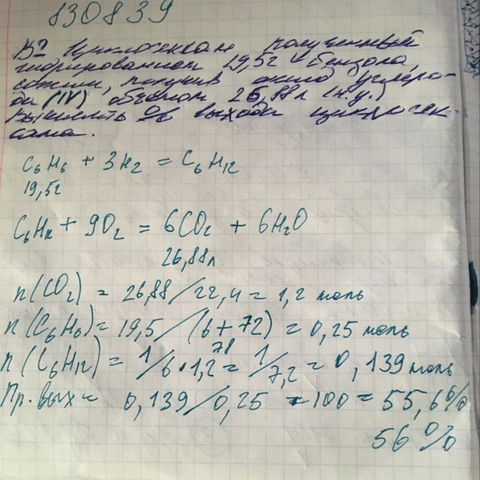 830839
В? Циклогексан полученный
гидрированием 19,5г бензола,
сожгли, получив оксид углеро-
да (IV) объемом 26,88л (н.у.)
Вычислить % выхода циклогек
сана.
C6H6 + 3H2 = C6H12
19,5г
C6H12 + 9O2 = 6CO2 + 6H2O
26,88л
n(CO2) = 26,88/22,4 = 1,2 моль
n(C6H6) = 19,5/(6+72) = 0,25 моль
78
n(C6H12) = 1/6·1,2 = 1/7,2 = 0,139 моль
Пр. вых = 0,139/0,25 · 100 = 55,6%
56%